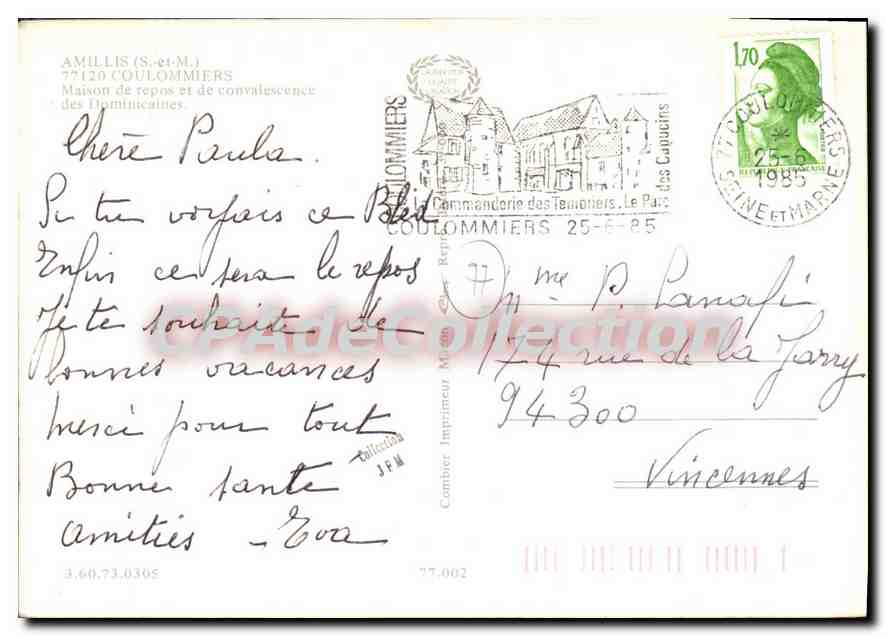 AMILLIS (S.-et-M.)
77120 COULOMMIERS
Maison de repos et de convalescence
des Dominicaines.
Chère Paula.
Si tu voyais ce Bled
Enfin ce sera le repos
Je te souhaite de
bonnes vacances
merci pour tout
Bonne santé
amitiés - Eva
Collection
JPM
3.60.73.0305
77.002
Combier Imprimeur Mâcon
COULOMMIERS
La Commanderie des Templiers. Le Parc
des Capucins
COULOMMIERS 25-6-85
1,70
77 COULOMMIERS
25-6
1985
SEINE ET MARNE
77
Mme P.
174 rue de la Jarry
94300
Vincennes
CPAdeCollection